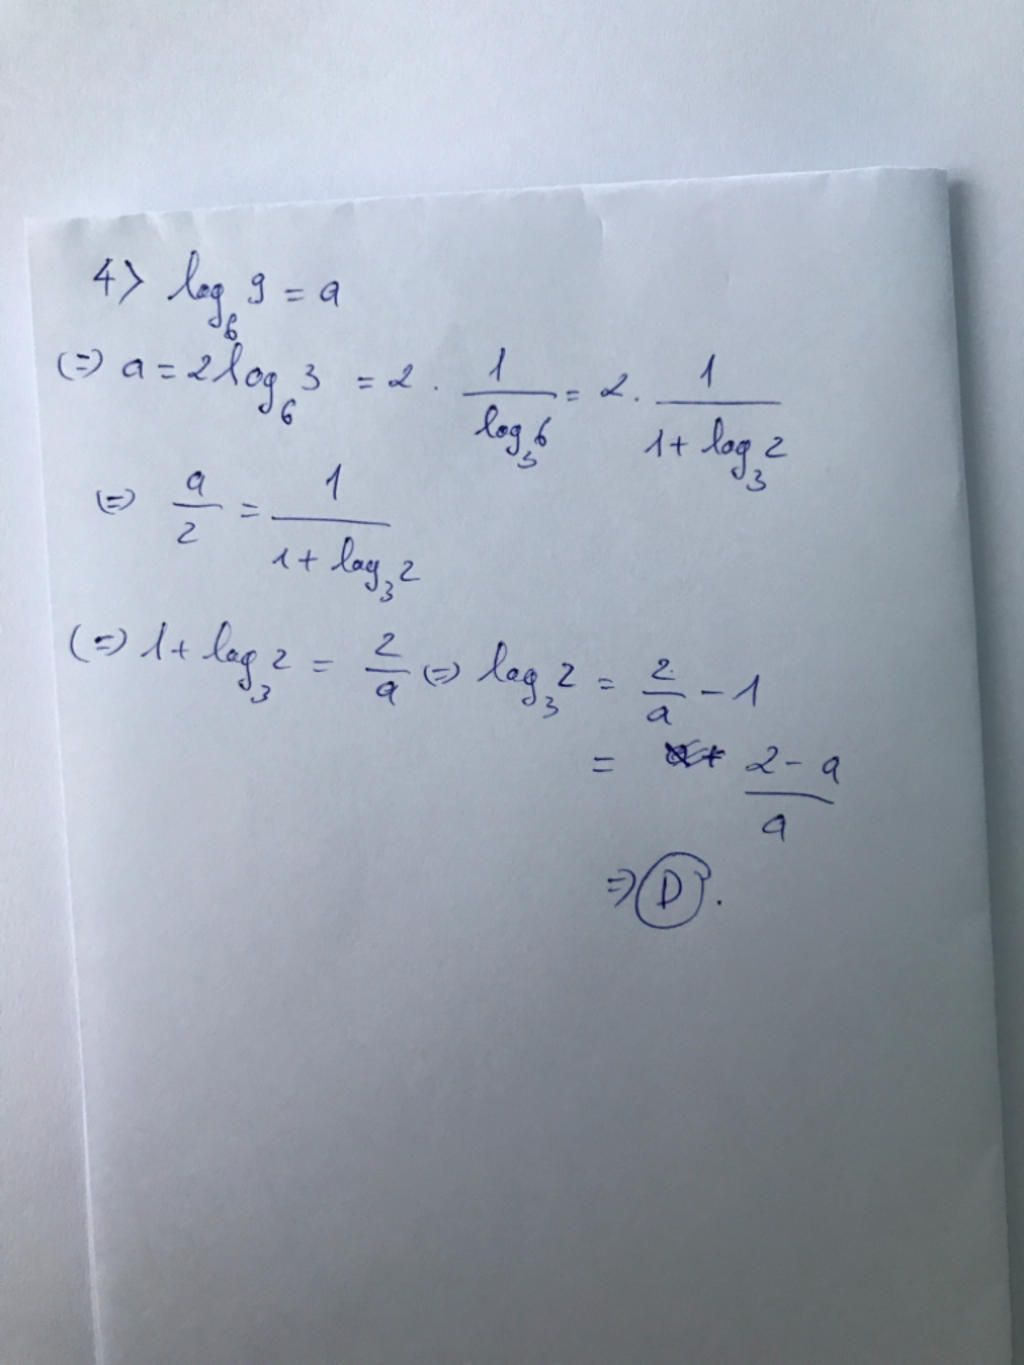 4> log₆ 9 = a
(=) a = 2log₆ 3 = 2 . 1/log₃6 = 2. 1/(1 + log₃2)
(=) a/2 = 1/(1 + log₃2)
(=) 1 + log₃2 = 2/a (=) log₃2 = 2/a - 1
= (2 - a)/a
=> D.